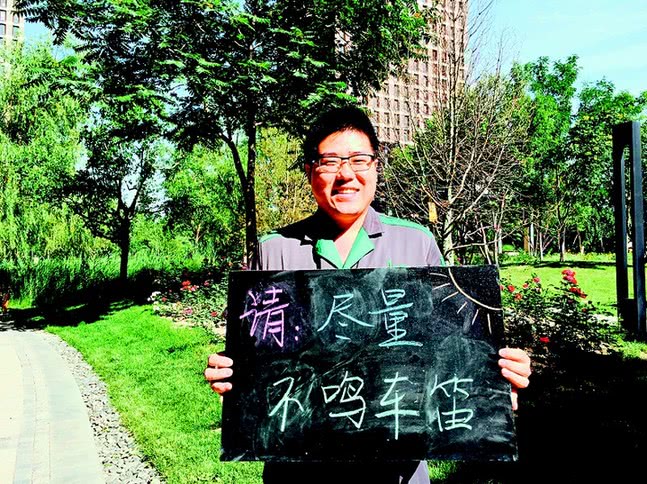 请：尽量
不鸣车笛